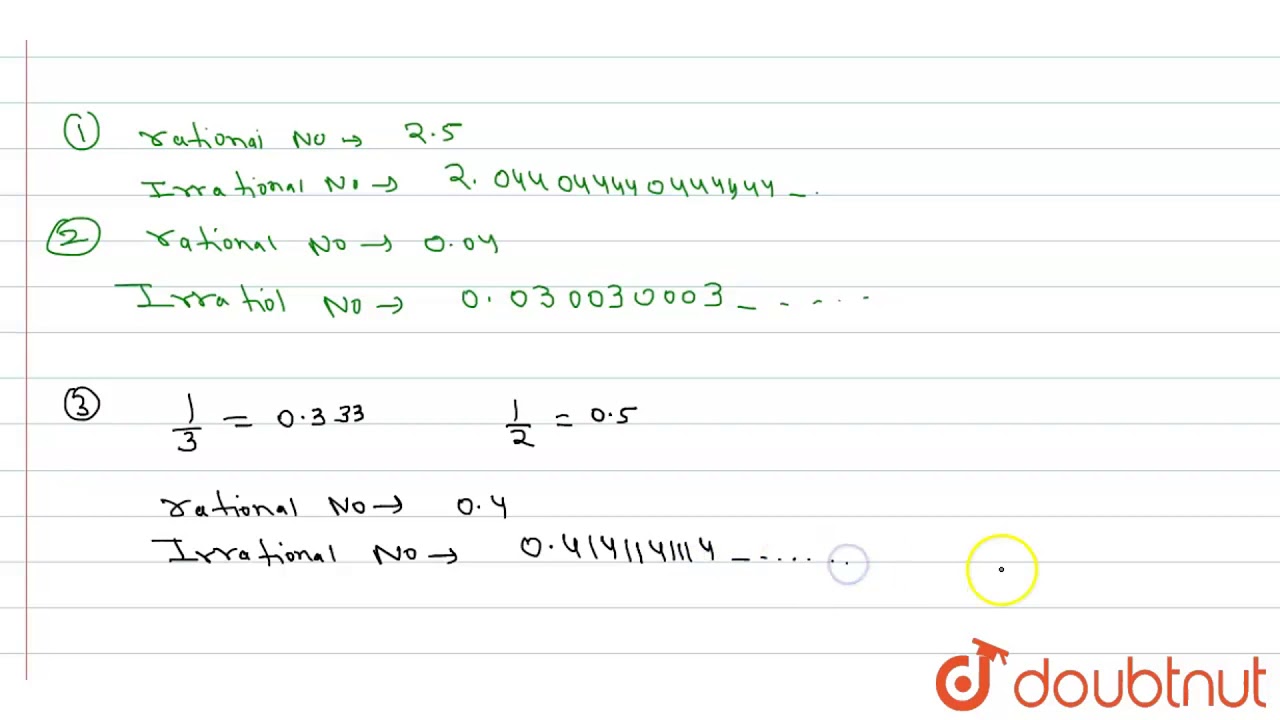 ① rational No → 2.5
Irrational No → 2.044044440444444 _ .
② rational No → 0.04
Irratiol No → 0.030030003 _ . . . . .
③ 1/3 = 0.333 1/2 = 0.5
rational No → 0.4
Irrational No → 0.4141141114 _ . . . . . .
doubtnut